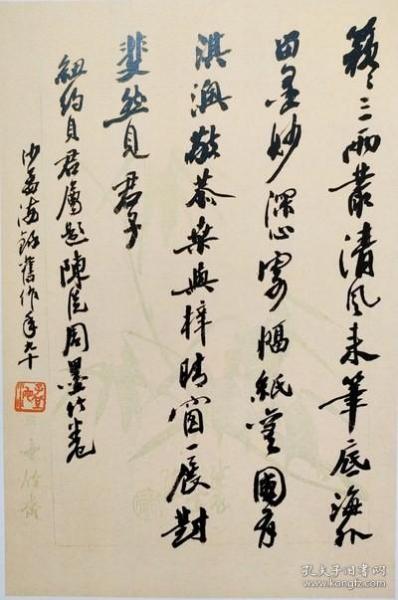 簌ミ三兩叢清風來筆底海外
留墨妙深心寄幅紙筐國有
淇澳敬恭桑與梓晴窗一展對
斐然見君子
紐約貝君屬題陳從周墨竹卷
沙孟海錄舊作年九十
孔夫子旧书网
www.kongfz.com